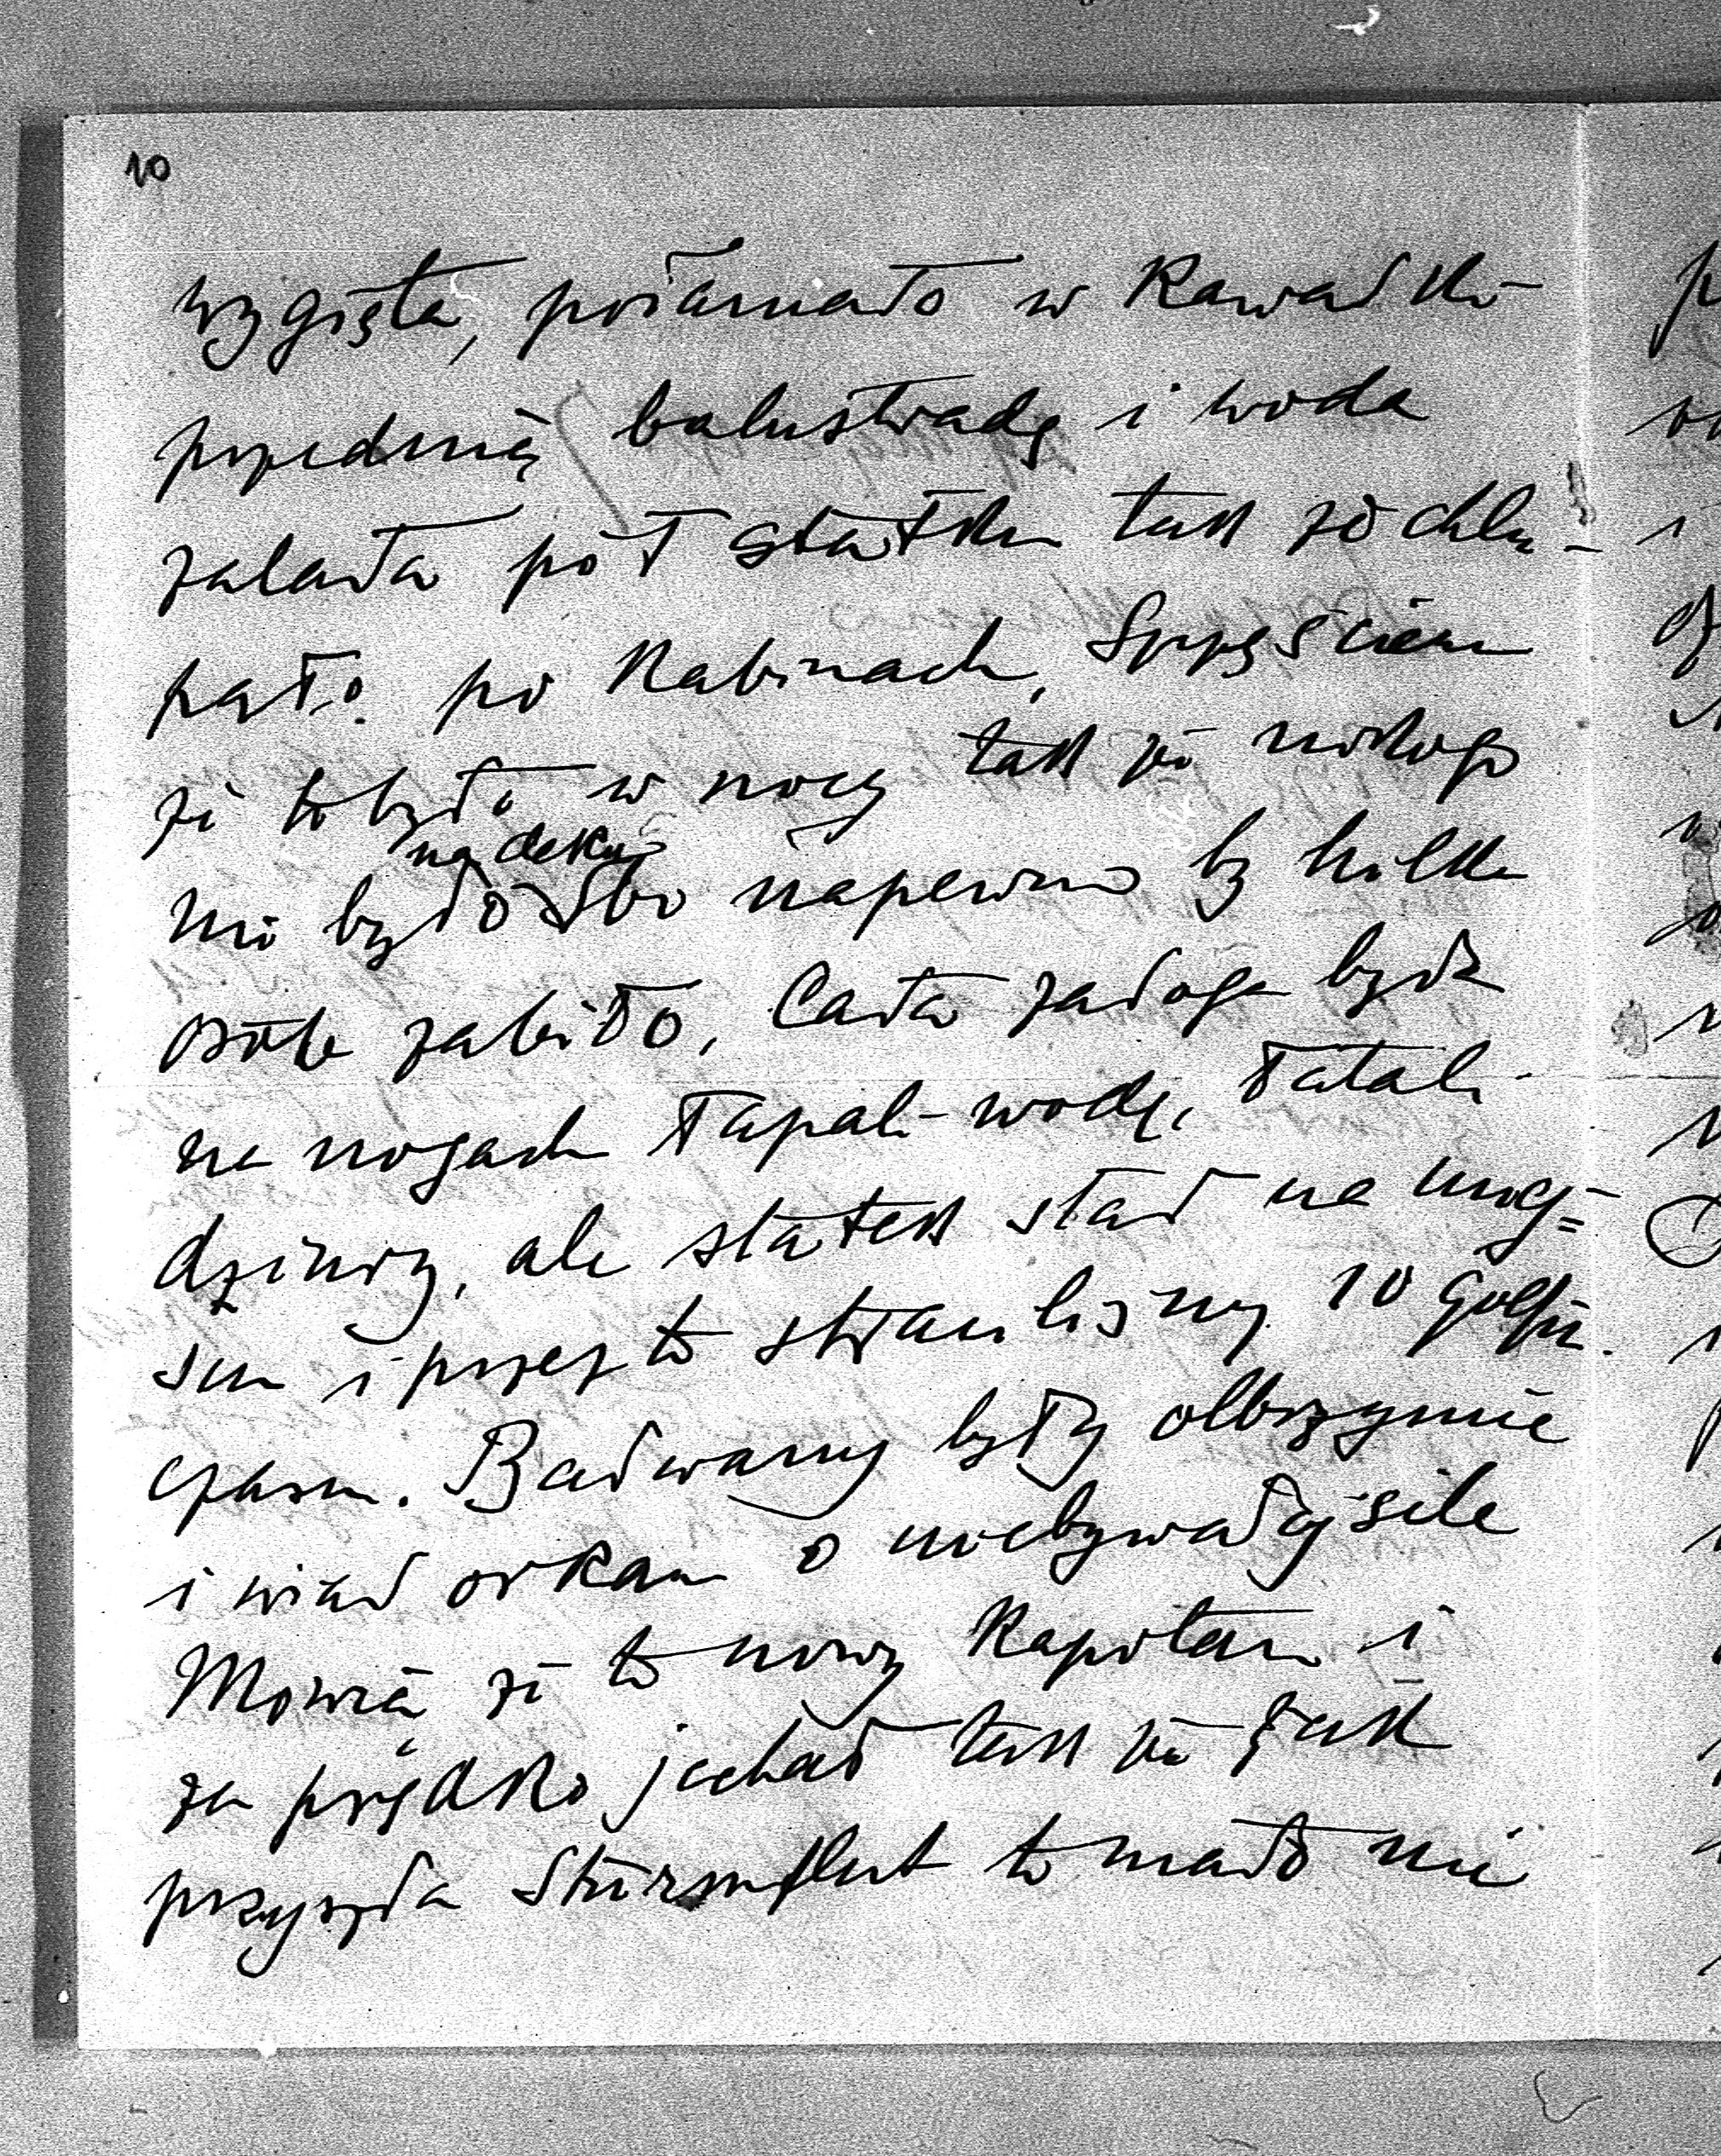 10
wygięta, połamało w kawałki
przednią balustradę i woda
zalała pół statku tak że chlu-
pało po kabinach, Szczęściem
że to było w nocy tak że nikogo
na deku
nie było bo napewno by kilka
osób zabiło, Cała załoga była
na nogach łapali wodę, łatali
dziury, ale statek stał na miej=
scu i przez to straciliśmy 10 godzin
czasu. Bałwany były olbrzymie
i wiał orkan o niebywałej sile
Mówią że to nowy kapitan i
za prędko jechał tak że jak
przyszła Sturmflut to mało nie